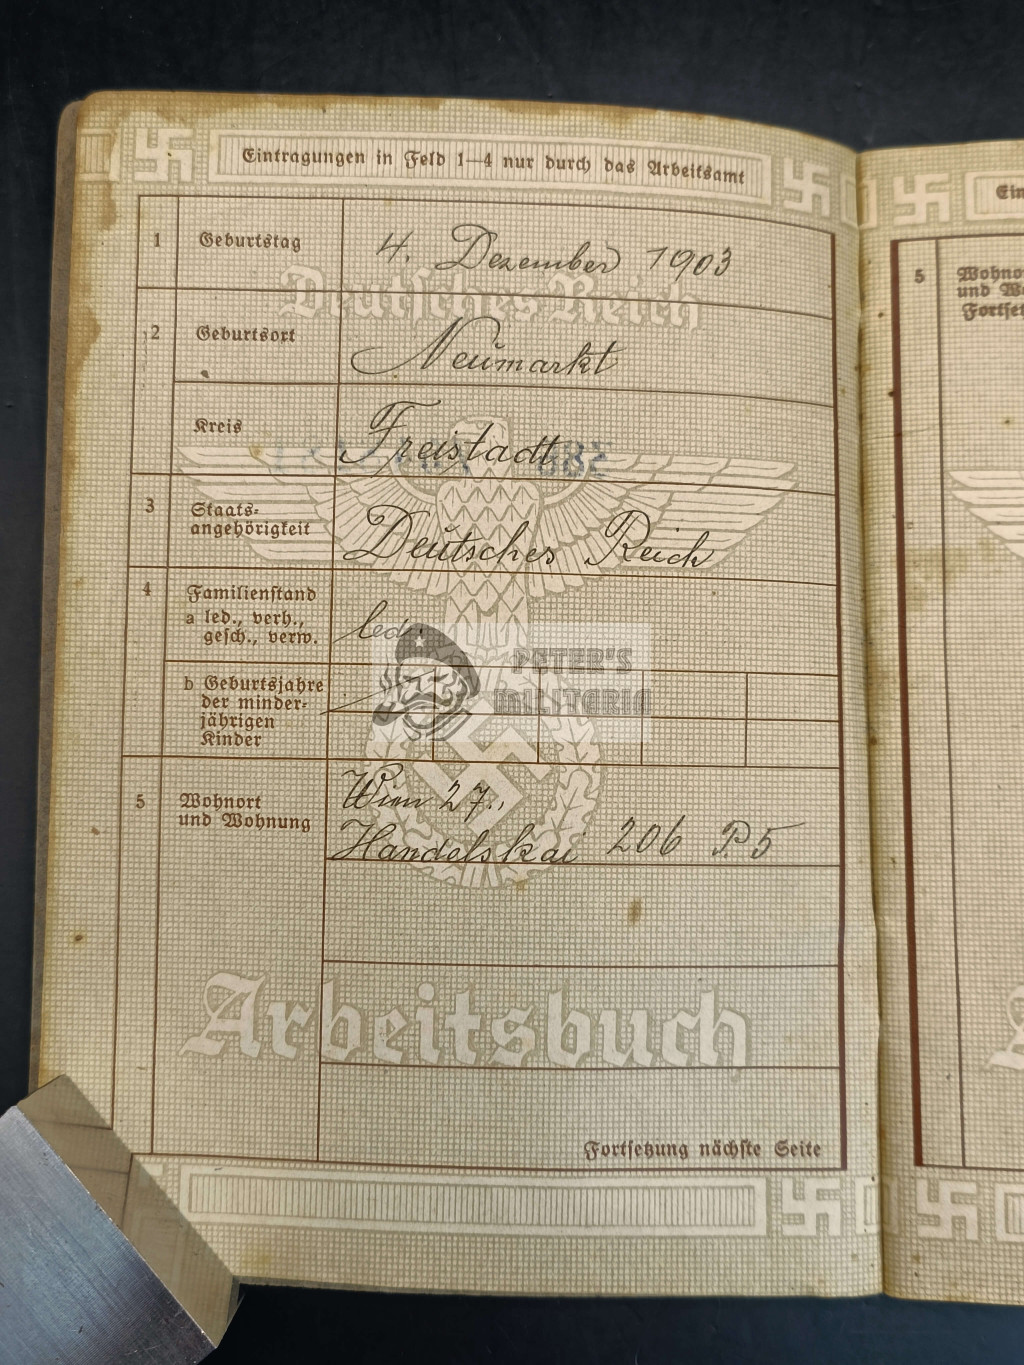 Eintragungen in Feld 1—4 nur durch das Arbeitsamt
1 Geburtstag 4. Dezember 1903
Deutsches Reich
2 Geburtsort Neumarkt
Kreis Freistadt
3 Staats-
angehörigkeit Deutsches Reich
4 Familienstand
a led., verh.,
gesch., verw. led.
PETER'S
MILITARIA
b Geburtsjahre
der minder-
jährigen
Kinder
5 Wohnort
und Wohnung
Wien 27.,
Handelskai 206 P. 5
Arbeitsbuch
Fortsetzung nächste Seite
Ein
5 Wohno
und W
Fortse